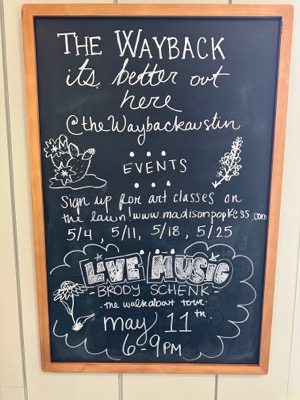 THE WAYBACK
it's better out
here
@theWaybackaustin
EVENTS
Sign up for art classes on
the lawn! www.madisonpopkess.com
5/4, 5/11, 5/18, 5/25
LIVE MUSIC
-BRODY SCHENK-
·the walkabout tour·
may 11th
6-9PM